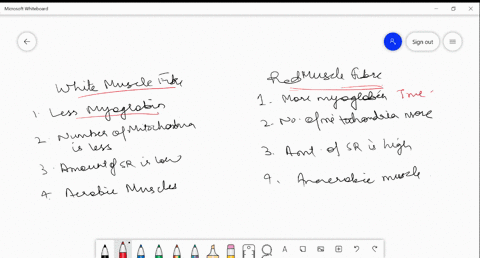 Microsoft Whiteboard
Sign out
White Muscle Fibre
1. Less Myoglobin
2. Number of Mitochondria
is less
3. Amount of SR is low
4. Aerobic Muscles
Red Muscle Fibre
1. More myoglobin True
2. No. of mitochondria more
3. Amt. of SR is high
4. Anaerobic muscle